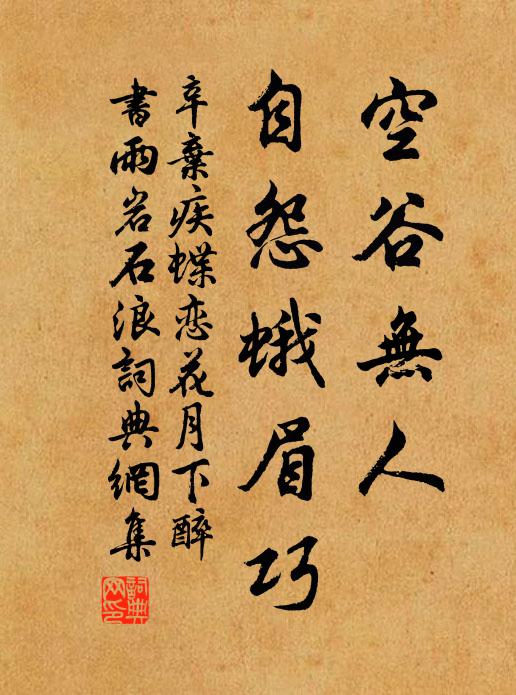 空谷無人
自怨蛾眉巧
辛棄疾蝶恋花月下醉
書雨岩石浪詞典網集
詞典网印